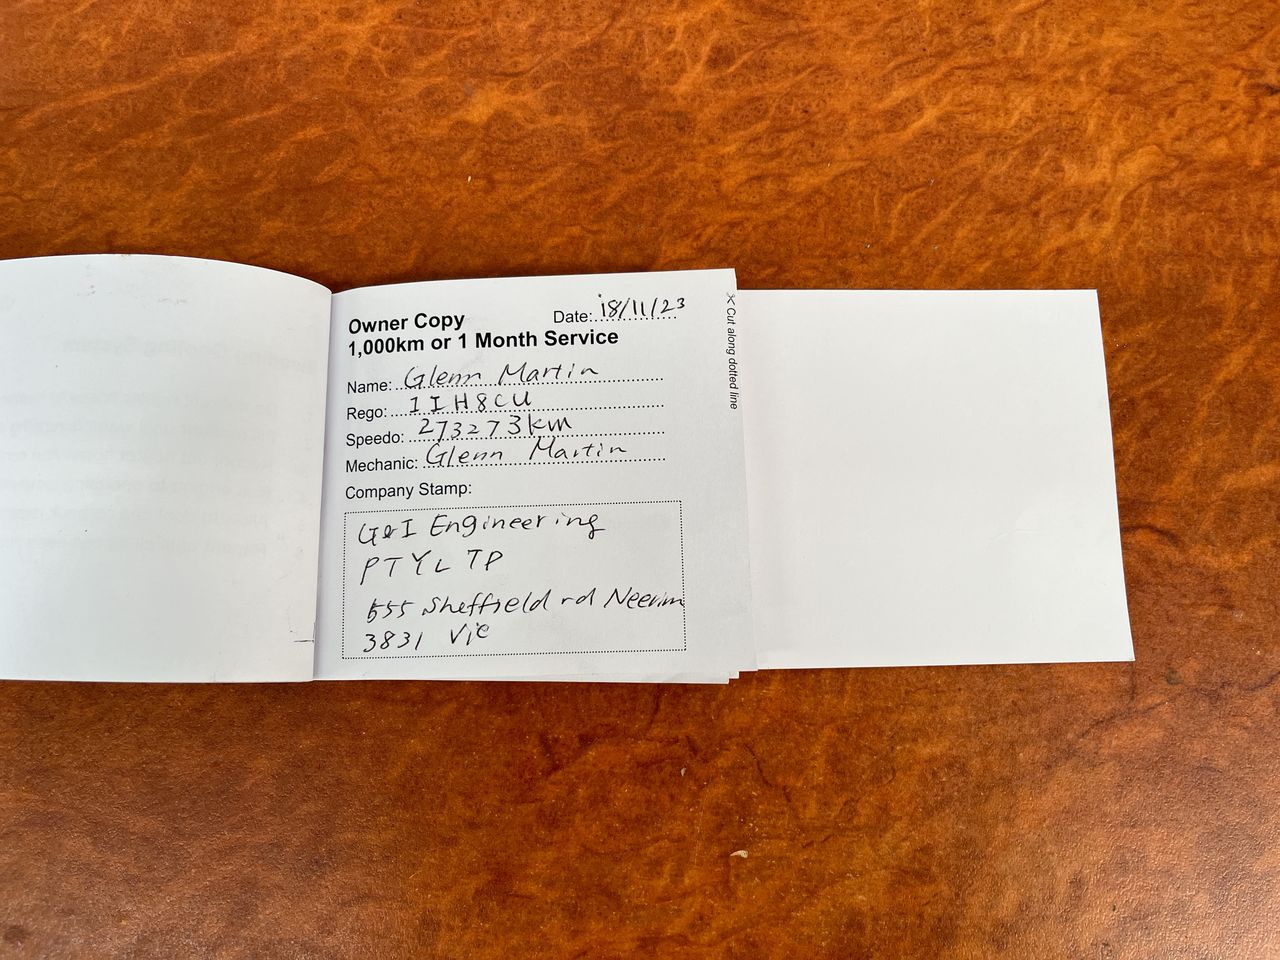 Owner Copy
Date: 18/11/23
1,000km or 1 Month Service
Name: Glenn Martin
Rego: 1IH8CU
Speedo: 273273km
Mechanic: Glenn Martin
Company Stamp:
G&I Engineering
PTYL TP
555 Sheffield rd Neerim
3831 Vic
Cut along dotted line